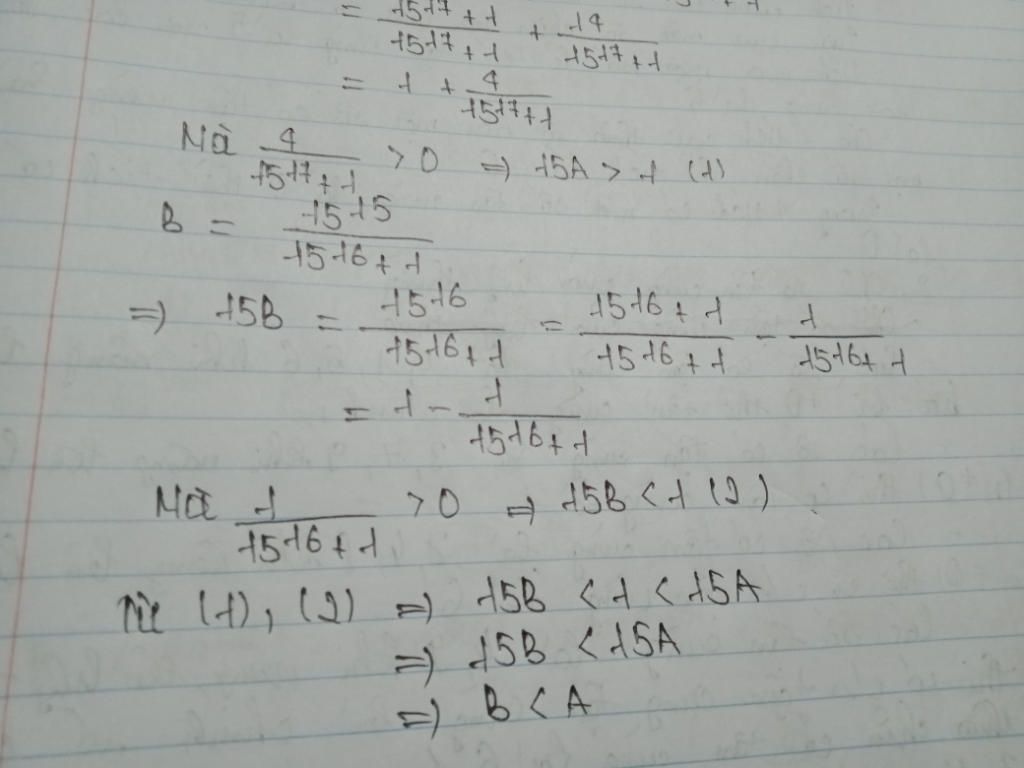 = 15¹⁷ + 1 / 15¹⁷ + 1 + 14 / 15¹⁷ + 1
= 1 + 4 / 15¹⁷ + 1
Mà 4 / 15¹⁷ + 1 > 0 => 15A > 1 (1)
B = 15¹⁵ / 15¹⁶ + 1
=> 15B = 15¹⁶ / 15¹⁶ + 1 = 15¹⁶ + 1 / 15¹⁶ + 1 - 1 / 15¹⁶ + 1
= 1 - 1 / 15¹⁶ + 1
Mà 1 / 15¹⁶ + 1 > 0 => 15B < 1 (2)
Từ (1), (2) => 15B < 1 < 15A
=> 15B < 15A
=> B < A